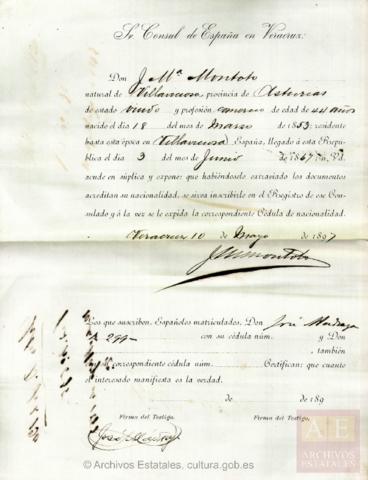 Sr. Consul de España en Veracruz:
Don J Mª Montoto
natural de Villaviciosa provincia de Asturias
de estado viudo y profesión comercio de edad de 44 años
nacido el día 18 del mes de Marzo de 1853; residente
hasta esta época en (Villaviciosa) España, llegado á esta Repú-
blica el día 3 del mes de Junio de 1867 á Vd.
acude en súplica y expone: que habiéndosele extraviado los documentos
acreditan su nacionalidad, se sirva inscribirle en el Registro de ese Con-
sulado y á la vez se le expida la correspondiente Cédula de nacionalidad.
Veracruz 10 de Mayo de 1897
JMMontoto
Los que suscriben, Españoles matriculados, Don José
299 con su cédula núm. y Don
también
correspondiente cédula núm. Certifican: que cuanto
el interesado manifiesta es la verdad.
de de 189
Firma del Testigo. Firma del Testigo.
José
AE
ARCHIVOS
ESTATALES
© Archivos Estatales, cultura.gob.es